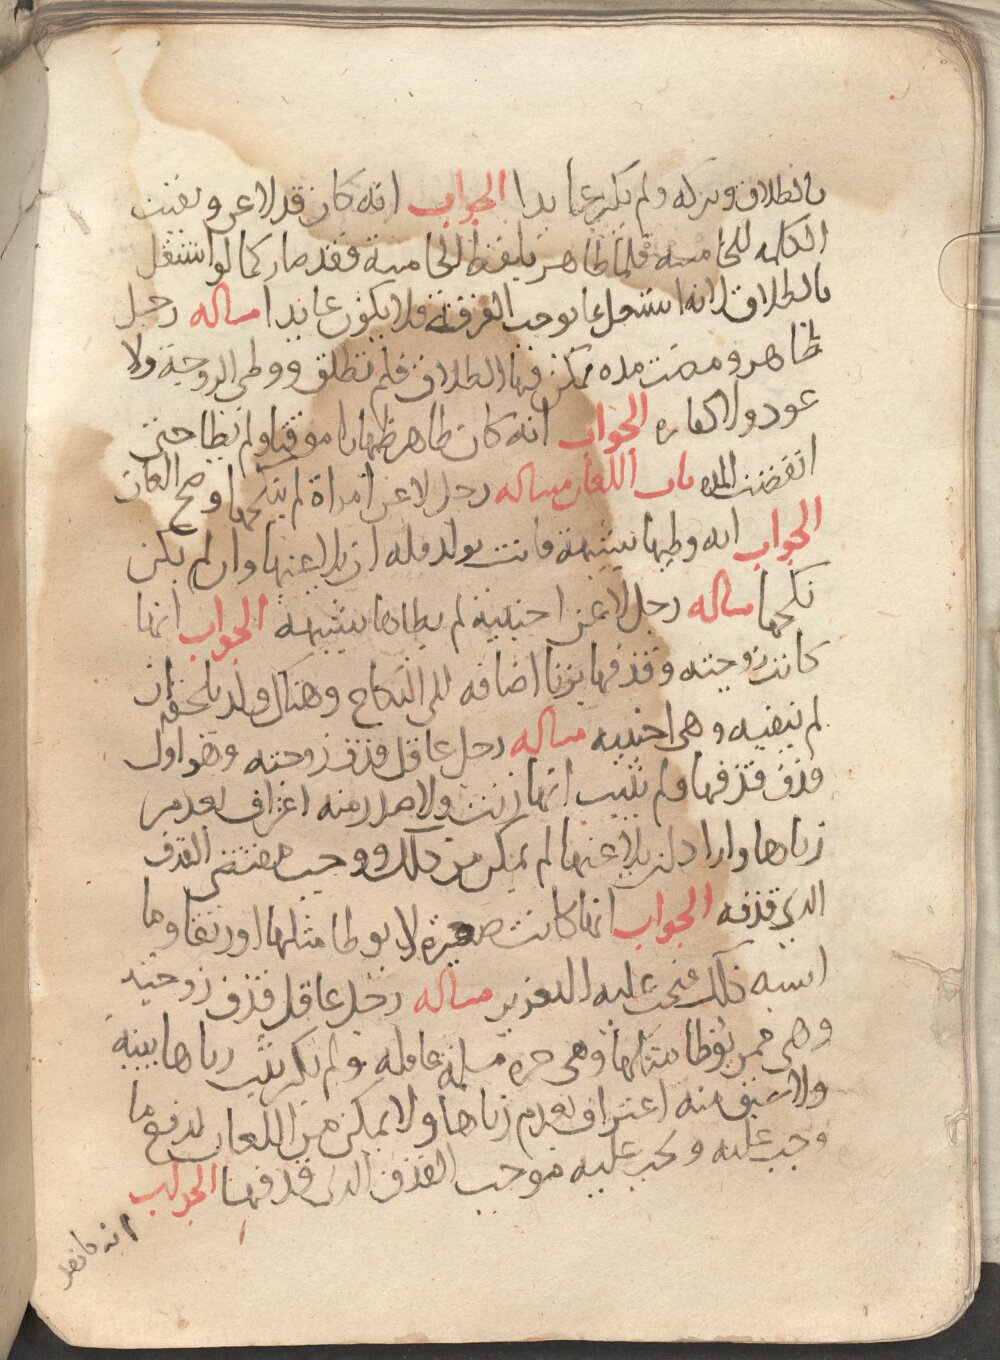 بالطلاق وتركه ولم يكن عايدا الجواب انه كان قد لاعن وبقيت
الكلمه الخامسة فلما ظاهر تلفظ الخامسة فقد صار كما لو اشتغل
بالطلاق لانه اشتغل بما يوجب الفرقة فلا يكون عايدا مساله رجل
ظاهر ومضت مده يمكن فيها الطلاق فلم يطلق ووطي الزوجية ولا
عود ولا كفاره الجواب انه كان ظاهر ظهارا موقتا ولم يطا حتى
انقضت المده باب اللعان مساله رجل لاعن امراة لم ينكحها وصح اللعان
الجواب انه وطيها بشبهة فاتت بولد فله ان يلاعنها وان لم يكن
نكحها مساله رجل لاعن اجنبية لم يطاها بشبهة الجواب انها
كانت زوجته وقذفها بزنا اضافه الى النكاح وهناك ولد يلحقه ان
لم ينفيه وهي اجنبيه مساله رجل عاقل قذف زوجته وهو اول
قذف قذفها ولم يثبت انها زنت ولا صدر منه اعتراف بعدم
زناها واراد ان يلاعنها لم يمكن من ذلك ووجب مقتضى القذف
الذي قذفه الجواب انها كانت صغيرة لا يوطا مثلها او رتقا وما
اشبه ذلك فيجب عليه التعزير مساله رجل عاقل قذف زوجته
وهي ممن يوطا مثلها وهي حره مسلمة عاقله ولم يكن ثبت زناها ببينة
ولا سبق منه اعتراف بعدم زناها ولا يمكن من اللعان لدفع ما
وجب عليه ويجب عليه موجب القذف الذي قذفها الجواب
انه كان قد